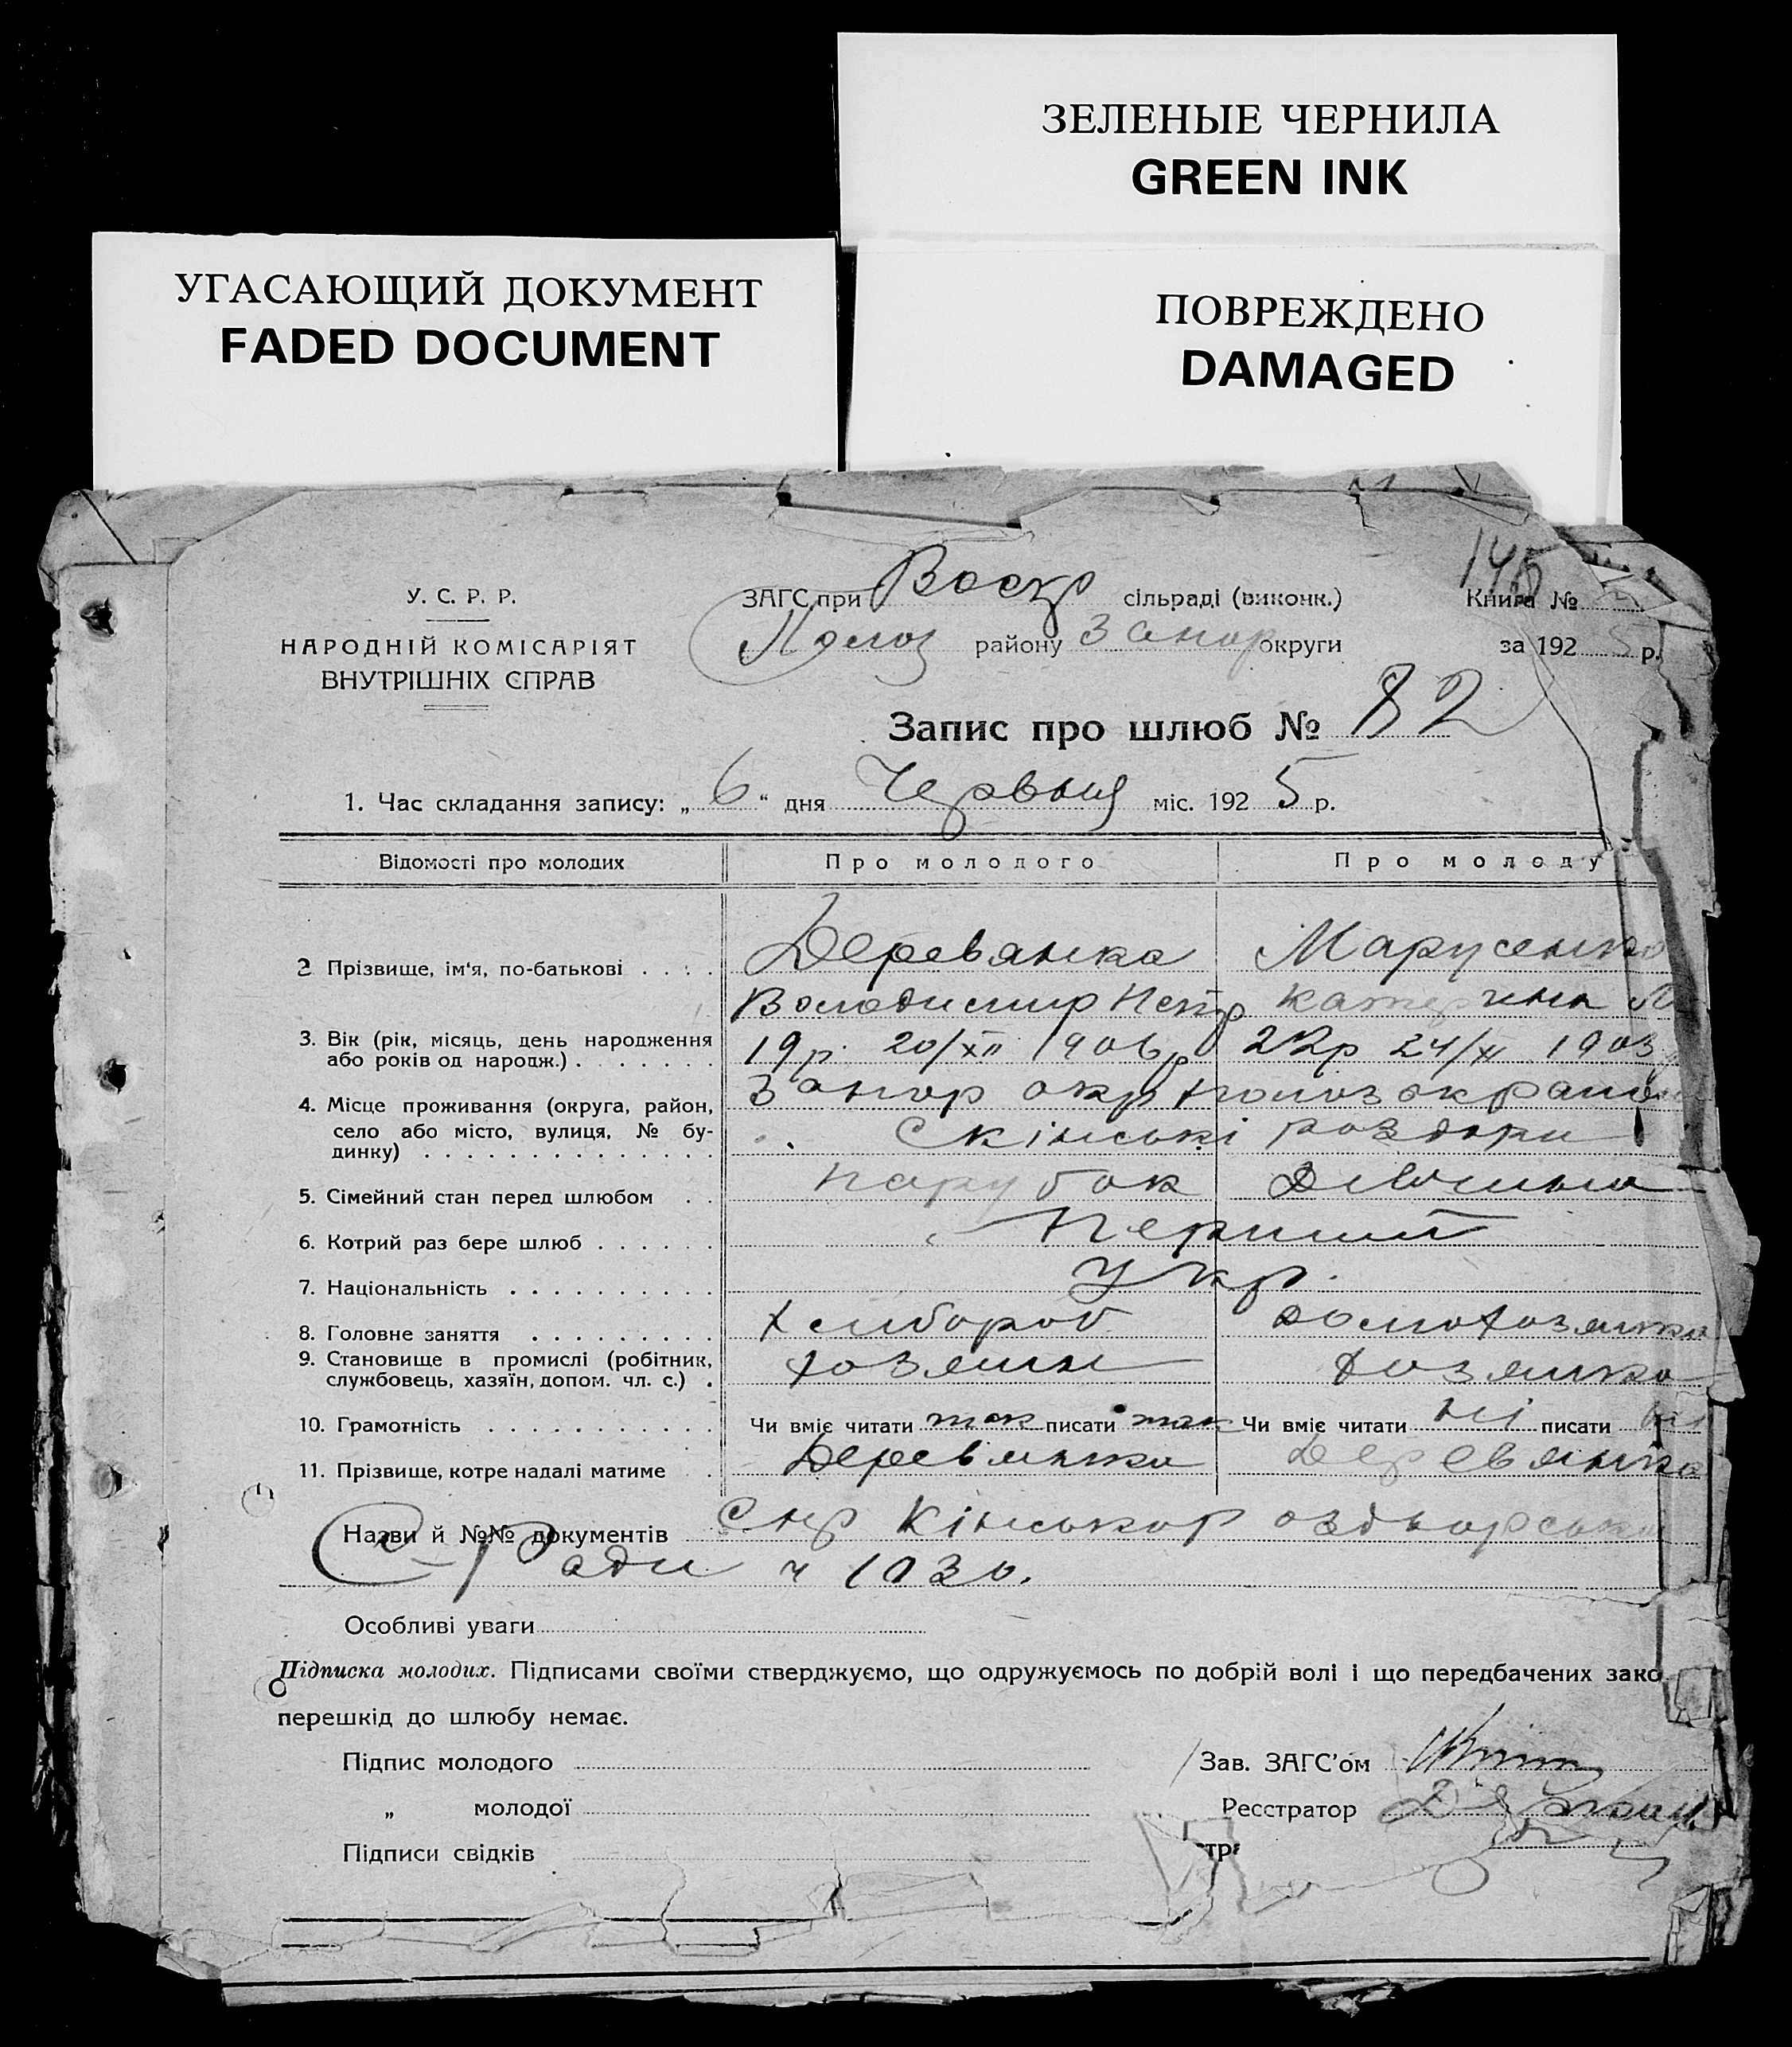 ЗЕЛЕНЫЕ ЧЕРНИЛА
GREEN INK
УГАСАЮЩИЙ ДОКУМЕНТ
FADED DOCUMENT
ПОВРЕЖДЕНО
DAMAGED
У. С. Р. Р.
НАРОДНІЙ КОМІСАРІЯТ
ВНУТРІШНІХ СПРАВ
145
ЗАГС при Воскр сільраді (виконк.) Книга №
Полоз району Запор округи за 192 5 р.
Запис про шлюб № 82
1. Час складання запису: „ 6 “ дня Червыня міс. 192 5 р.
Відомості про молодих Про молодого Про молоду
2 Прізвище, ім'я, по-батькові . . . . Деревянка Марусенко
Володимир Петр Катерина
3. Вік (рік, місяць, день народження або років од народж.) . . . . . . . 19 р. 20/XII 1906 р 22р 24/XI 1903
4. Місце проживання (округа, район, село або місто, вулиця, № будинку) . . . . . . . . . . . . . . Запор окр Полоз
С Кінські роздори
5. Сімейний стан перед шлюбом . . Парубок Дівчина
6. Котрий раз бере шлюб . . . . . . Перший
7. Національність . . . . . . . . . . Укр.
8. Головне заняття . . . . . . . . . Хлибороб домохозяйка
9. Становище в промислі (робітник, службовець, хазяїн, допом. чл. с.) . хозяин хозяйка
10. Грамотність . . . . . . . . . . . Чи вміє читати так писати так Чи вміє читати ні писати ні
11. Прізвище, котре надалі матиме . Деревянка Деревянка
Назви й №№ документів Кінськор оздорсько
С-Ради ч 1030.
Особливі уваги
Підписка молодих. Підписами своїми стверджуємо, що одружуємось по добрій волі і що передбачених зако
перешкід до шлюбу немає.
Підпис молодого Зав. ЗАГС'ом
„ молодої Реєстратор
Підписи свідків